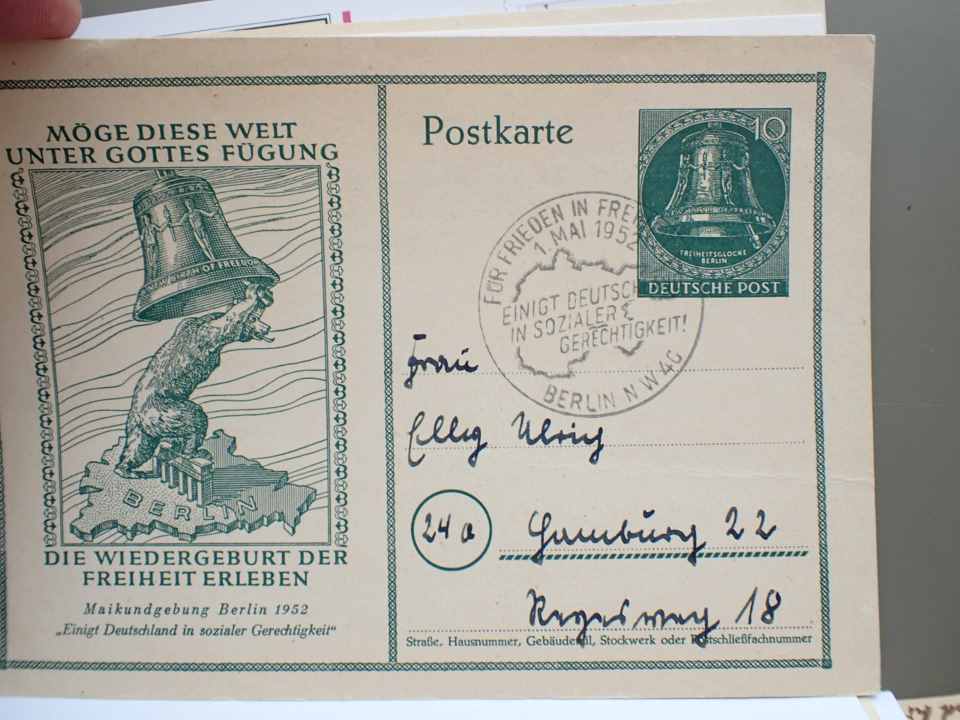 MÖGE DIESE WELT
UNTER GOTTES FÜGUNG
NEW BIRTH OF FREEDOM
BERLIN
DIE WIEDERGEBURT DER
FREIHEIT ERLEBEN
Maikundgebung Berlin 1952
„Einigt Deutschland in sozialer Gerechtigkeit"
Postkarte
10
FREIHEITSGLOCKE
BERLIN
DEUTSCHE POST
FÜR FRIEDEN IN FREI
1. MAI 1952
EINIGT DEUTSCH
IN SOZIALER
GERECHTIGKEIT!
BERLIN NW 40
Frau
Elly Ulrich
24a Hamburg 22
18
Straße, Hausnummer, Gebäudeteil, Stockwerk oder Postschließfachnummer